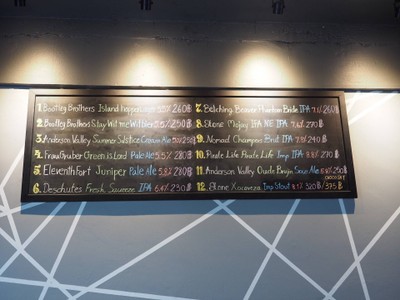 1. Bootleg Brothers Island hopper 5.5% 260฿
2. Bootleg Brothers Stay Wit me Witbier 5.5% 250฿
3. Anderson Valley Summer Solstice Cream Ale 250฿
4. FrauGruber Green is Lord Pale Ale 5.5% 280฿
5. Eleventh Fort Juniper Pale Ale 5.8% 280฿
6. Deschutes Fresh Squeeze IPA 6.4% 230฿
7. Belching Beaver Phantom Bride IPA 7.1% 260฿
8. Stone Mojay IPA NE IPA 7.6% 270฿
9. Nomad Champers Brut IPA 7.9% 240฿
10. Pirate Life Pirate Life Imp IPA 8.8% 270฿
11. Anderson Valley Oude Bruin Sour Ale 250฿
12. Stone Xocoveza Imp Stout 8.1% 320฿/375฿